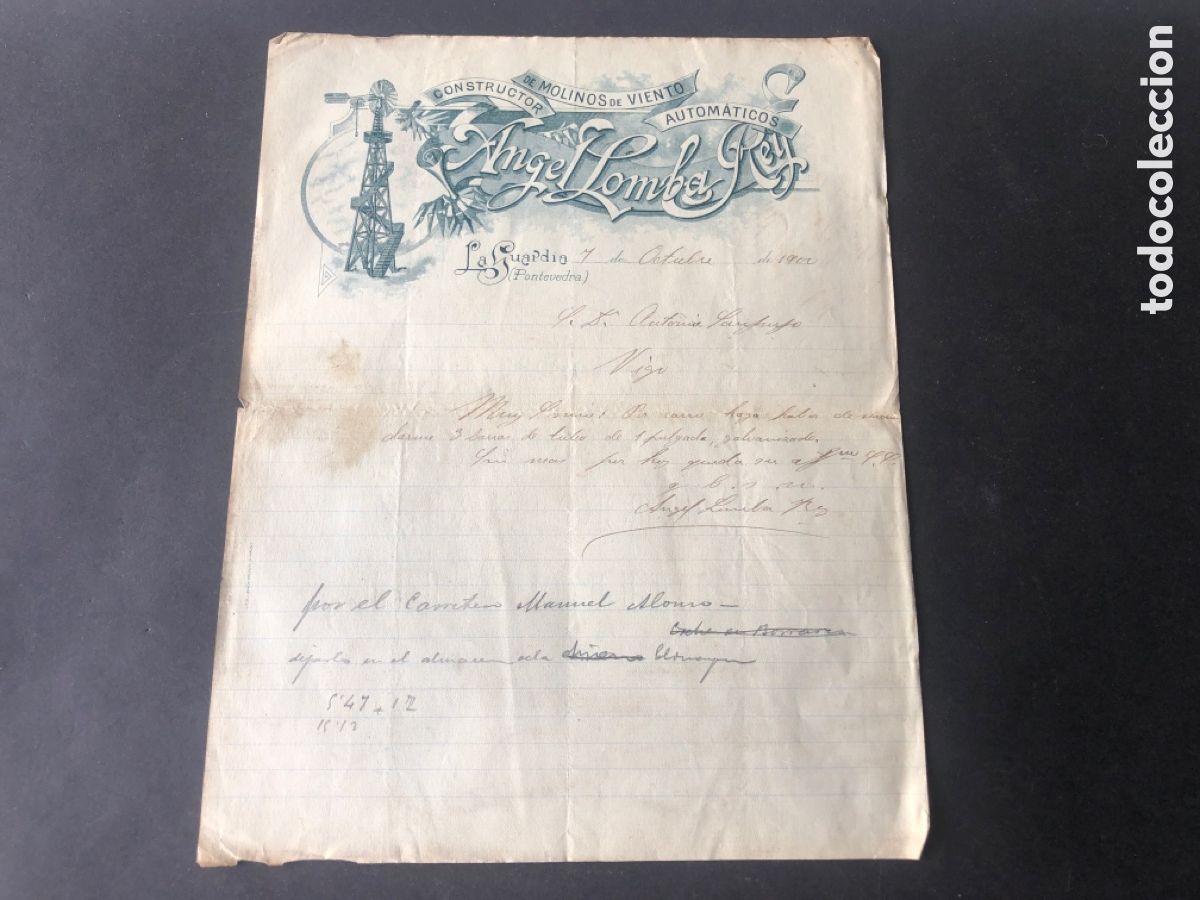 CONSTRUCTOR DE MOLINOS DE VIENTO AUTOMÁTICOS
Angel Lomba Rey
La Guardia 7 de Octubre de 190
(Pontevedra)
S. D. Antonio
Vigo
Muy Sr. mio: Por carro haga
darme 3 barras de tubo de 1 pulgada, galvanizado.
Sin mas por hoy queda su S. S.
q. b. s. m.
Angel Lomba Rey
por el Carretero Manuel Alonso—
dejarlo en el almacen de la
5'47 + 12
todocoleccion